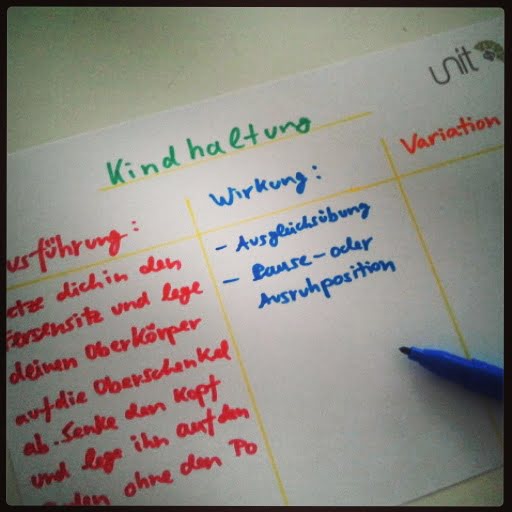 unit
Kindhaltung
usführung:
etze dich in den
Fersensitz und lege
deinen Oberkörper
auf die Oberschenkel
ab. Senke den Kopf
und lege ihn auf den
oden ohne den Po
Wirkung:
- Ausgleichsübung
- Pause- oder
Ausruhposition
Variation